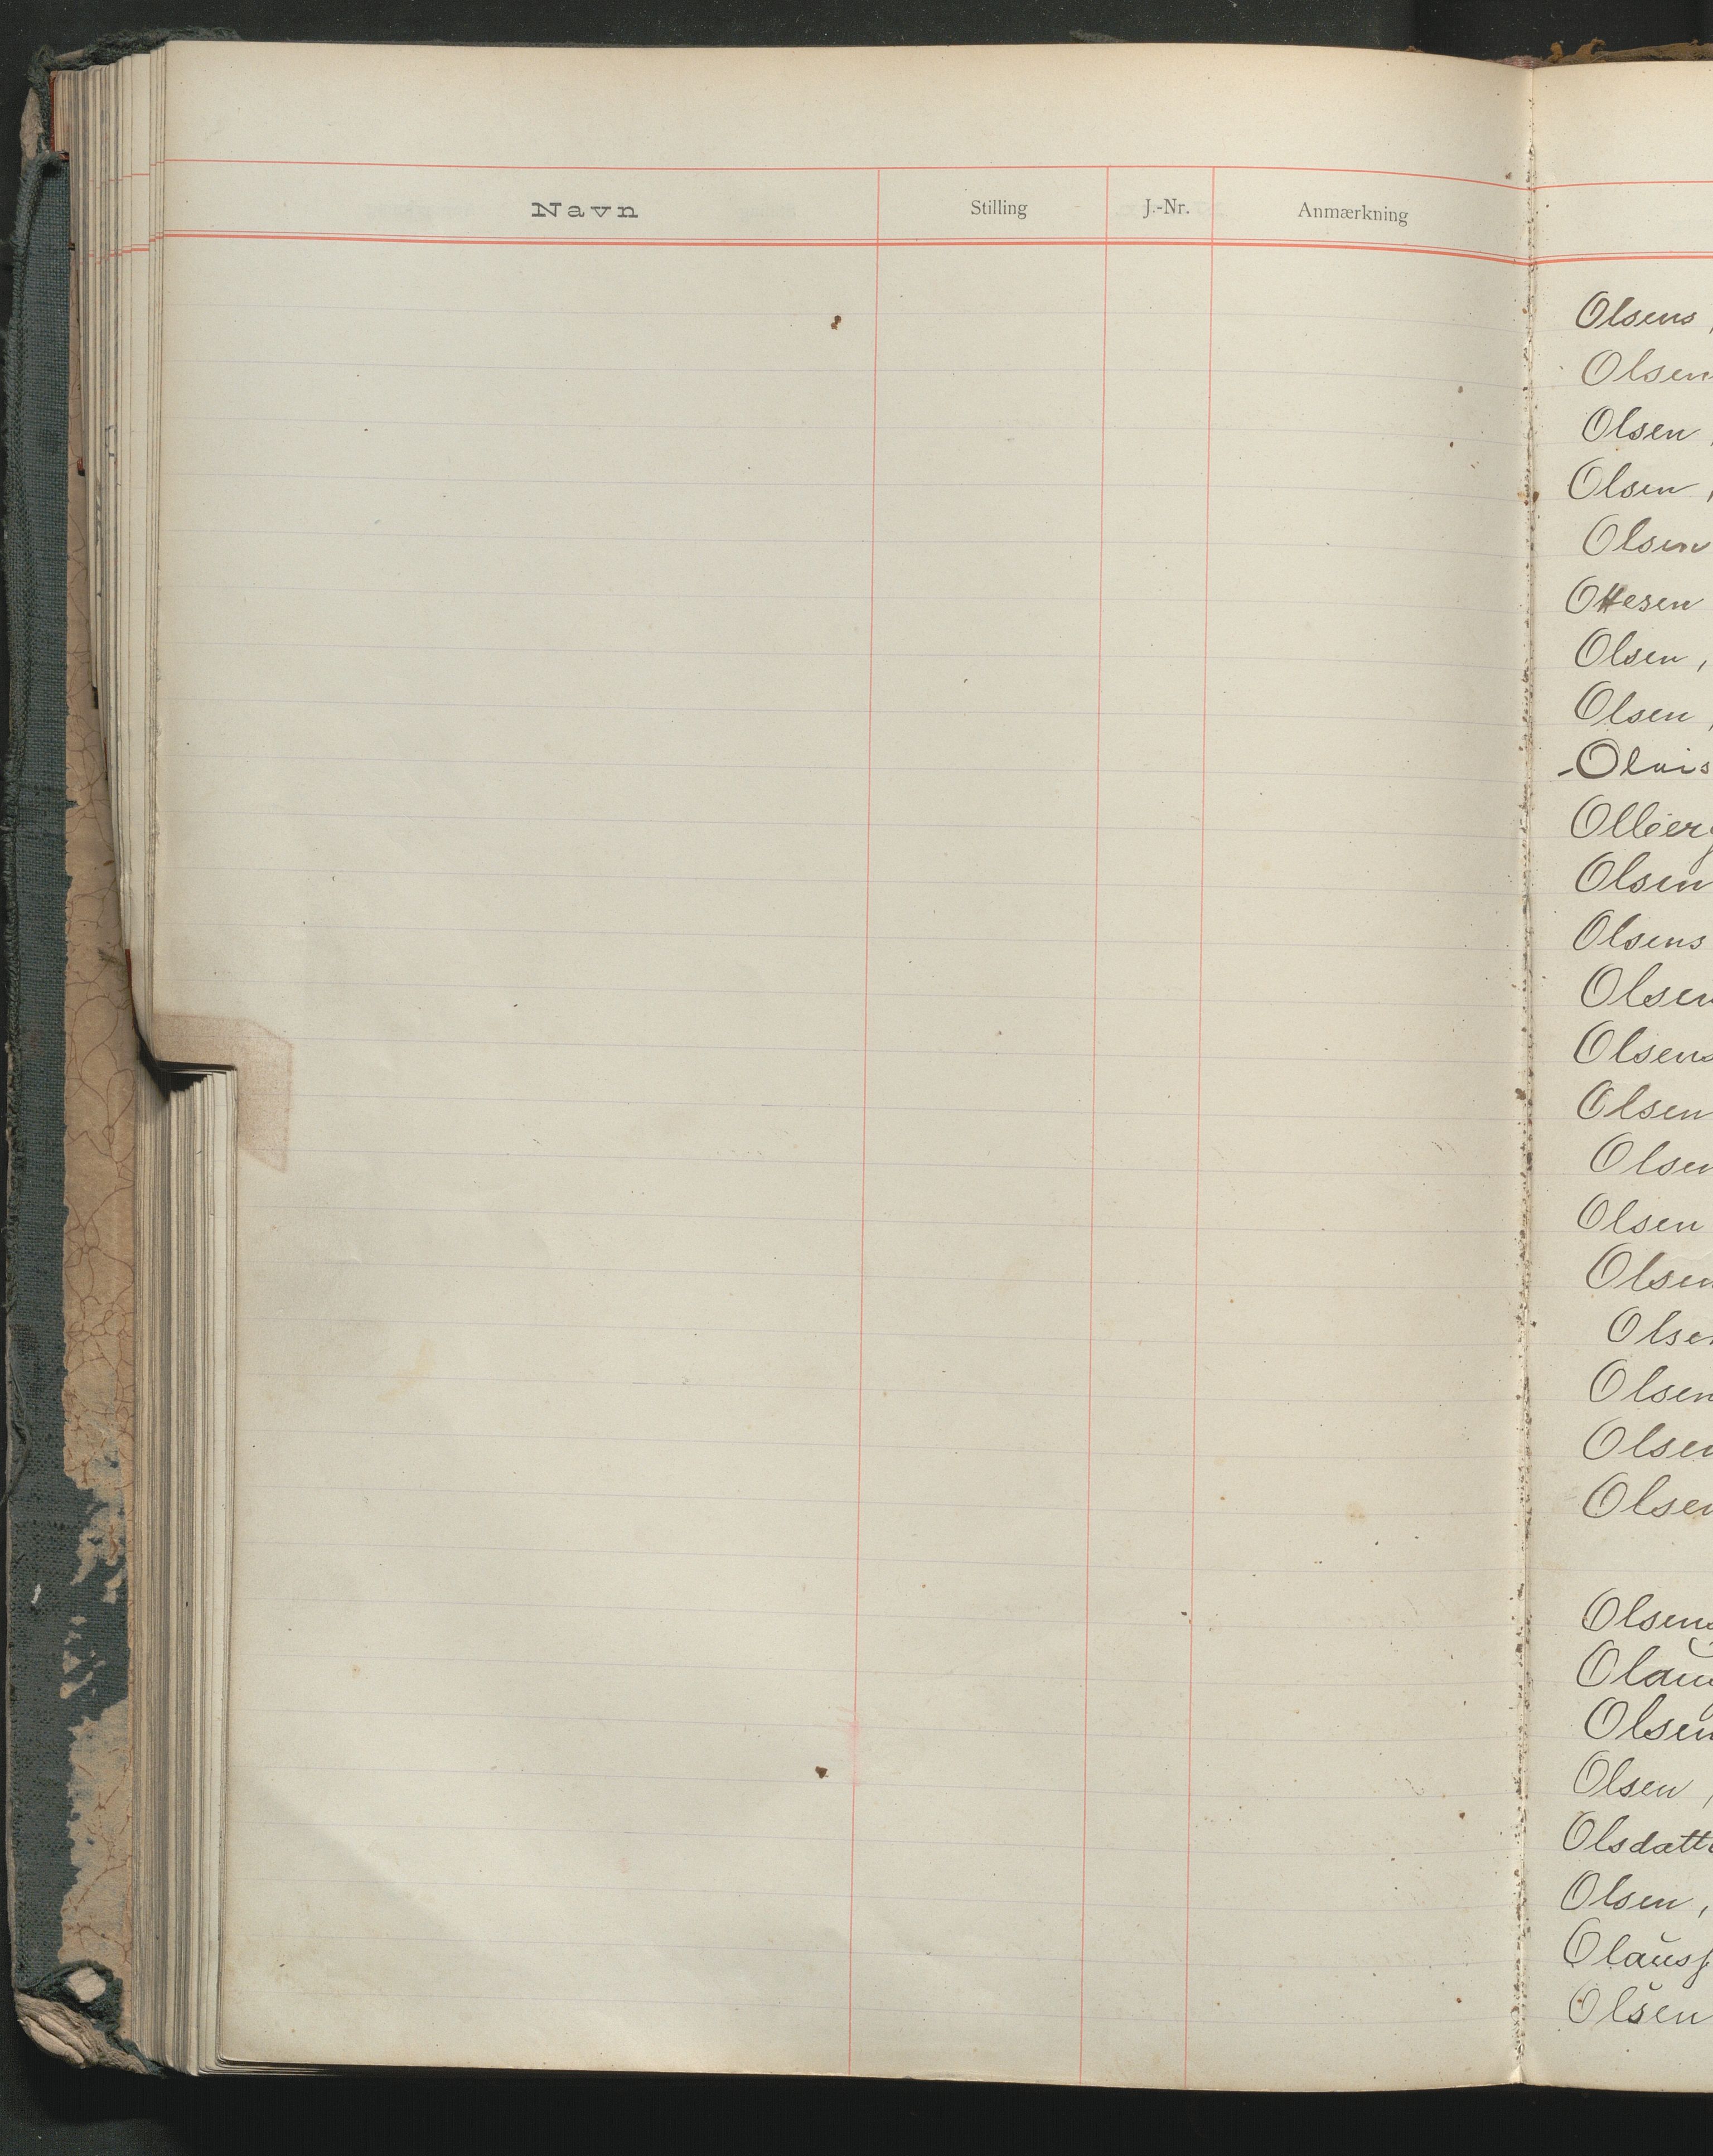 Navn Stilling J.-Nr. Anmærkning
Olsens,
Olsen
Olsen,
Olsen,
Olsen
Ottesen
Olsen,
Olsen,
Olsen
Olsens
Olsen
Olsens
Olsen
Olsen
Olsen
Olsen
Olsen
Olsen
Olsen
Olsen
Olsens
Olsen
Olsen,
Olsdatte
Olsen,
Olauss
Olsen